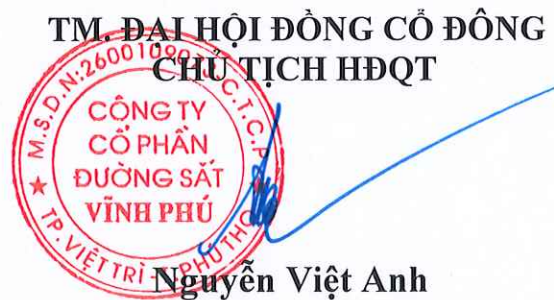 TM. ĐẠI HỘI ĐỒNG CỔ ĐÔNG
CHỦ TỊCH HĐQT
CÔNG TY
CỔ PHẦN
ĐƯỜNG SẮT
VĨNH PHÚ
TP. VIỆT TRÌ - PHÚ THỌ
Nguyễn Việt Anh